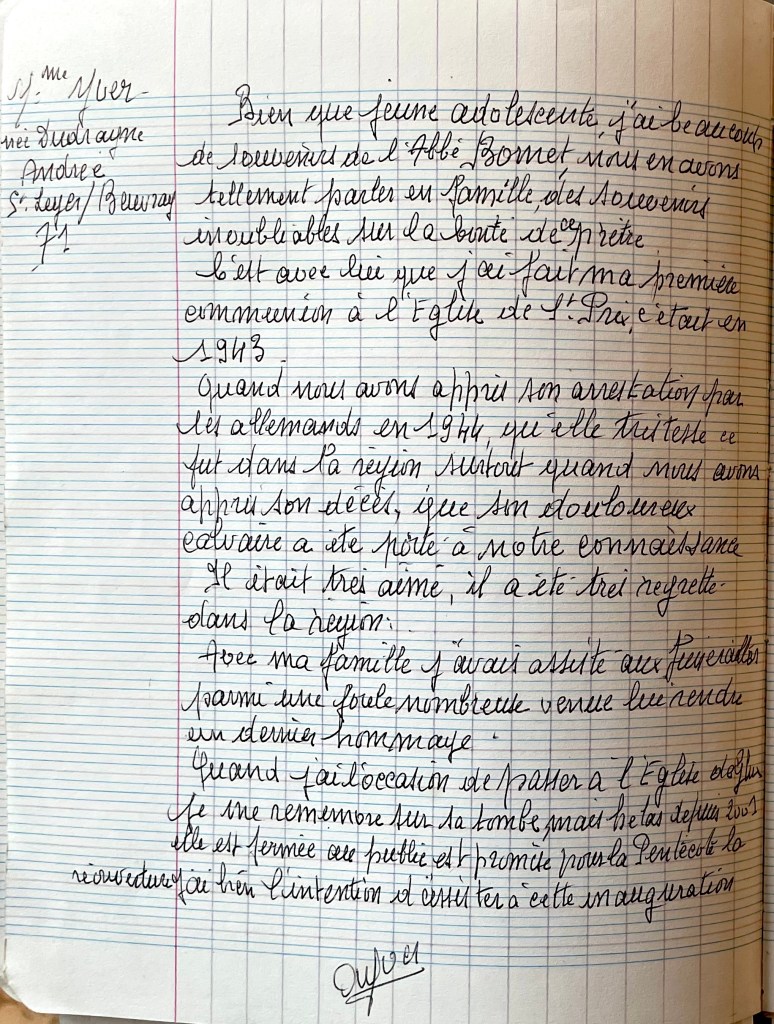 Mme Yver
née Dudrayne
Andrée
St Leger/Beuvray
71
Bien que jeune adolescente, j'ai beaucoup
de souvenirs de l'Abbé Bornet, nous en avons
tellement parler en famille, des souvenirs
inoubliables sur la bonté de ce prêtre
C'est avec lui que j'ai fait ma première
communion à l'Eglise de St. Prix, c'était en
1943.
Quand nous avons appris son arrestation par
les allemands en 1944, qu'elle tristesse ce
fut dans la région surtout quand nous avons
appris son décès, que son douloureux
calvaire a été porté à notre connaissance
Il était très aimé, il a été très regretté
dans la région.
Avec ma famille j'avais assisté aux funérailles
parmi une foule nombreuse venue lui rendre
un dernier hommage.
Quand j'ai l'occasion de passer à l'Eglise de Glux
je me remémore sur sa tombe, mais hélas depuis 2001
elle est fermée au public est promise pour la Pentecôte la
réouverture j'ai bien l'intention d'assister à cette inauguration